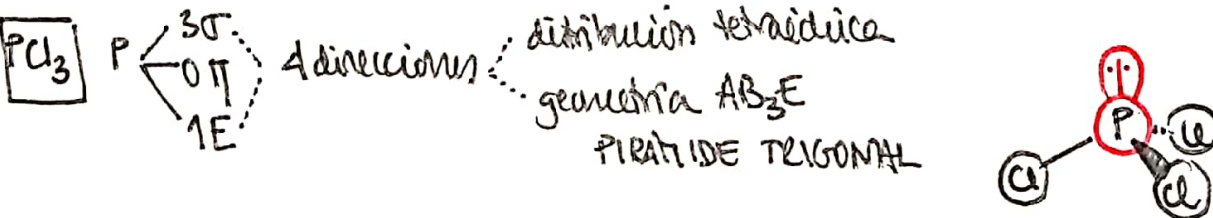 PCl₃ P 3σ 4 direcciones distribución tetraédrica
0 π geometría AB₃E
1E PIRÁMIDE TRIGONAL
P Cl
Cl Cl